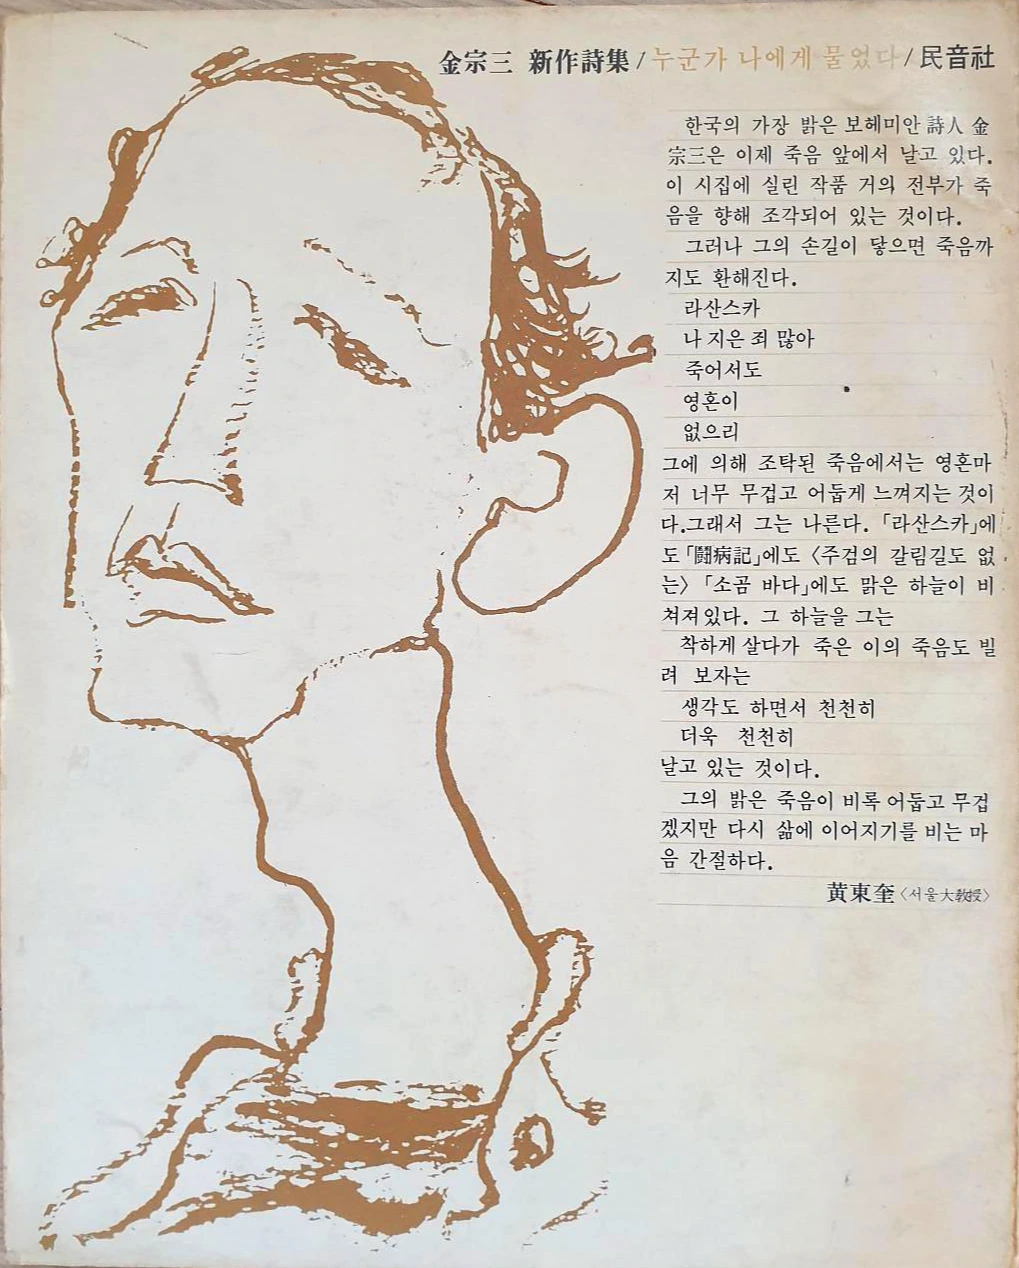 金宗三 新作詩集 / 누군가 나에게 물었다 / 民音社
한국의 가장 밝은 보헤미안 詩人 金
宗三은 이제 죽음 앞에서 날고 있다.
이 시집에 실린 작품 거의 전부가 죽
음을 향해 조각되어 있는 것이다.
그러나 그의 손길이 닿으면 죽음까
지도 환해진다.
라산스카
나 지은 죄 많아
죽어서도
영혼이
없으리
그에 의해 조탁된 죽음에서는 영혼마
저 너무 무겁고 어둡게 느껴지는 것이
다.그래서 그는 나른다. 「라산스카」에
도 「鬪病記」에도 〈주검의 갈림길도 없
는〉 「소곰 바다」에도 맑은 하늘이 비
쳐져 있다. 그 하늘을 그는
착하게 살다가 죽은 이의 죽음도 빌
려 보자는
생각도 하면서 천천히
더욱 천천히
날고 있는 것이다.
그의 밝은 죽음이 비록 어둡고 무겁
겠지만 다시 삶에 이어지기를 비는 마
음 간절하다.
黃東奎 〈서울大敎授〉